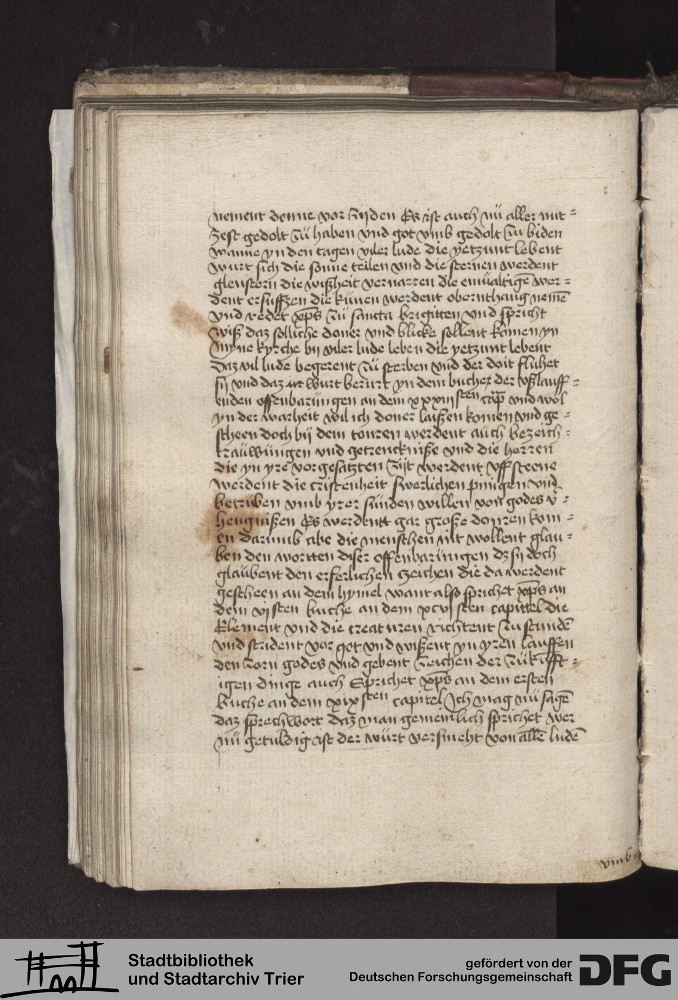 nement denne vor zijden Es ist auch nü aller nut=
zest gedolt zü haben vnd got vmb gedolt zu biden
wanne yn den tagen viler lude die yetzunt lebent
wurt sich die sonne teilen vnd die sternen werdent
glenstern die wißheit vernarren die einualtige wer=
dent ersuffzen die künen werdent oberuthaug nemē
vnd redet xp̄s zü sancta brigitten vnd spricht
wiß daz solliche doner vnd blicke sollent komen yn
myne kyrche bij viler lude leben die yetzunt lebent
daz vil lude begerent zü sterben vnd der doit fluhet
sij vnd daz wurt berurt yn dem buche der vßlauff=
enden offenbarüngen an dem xxxiij sten cap̄ vnd wol
yn der warheit wil ich doner laißen komen vnd ge=
scheen doch bij dem tonren werdent auch bezeich=
vnd getrenckniße vnd die herren
die yn yre vorgesatzten zijt werdent vff steene
werdent die cristenheit swerlichen pinigen vnd
betrüben vmb yrer sünden willen von godes v̄=
hengnißen Es werdent gar groiße donren kom=
en darumb abe die menschen nit wollent glau=
ben den wortten diser offenbarüngen dz sij doch
glaubent den erferlichen zeichen die da werdent
gescheen an dem hymel want also sprichet xp̄s an
dem vj sten buche an dem xcvj sten capittel die
Element vnd die creaturen richtent zu stundē
vnd strident vor got vnd wißent yn yren lauffen
den zorn godes vnd gebent zeichen der zükufft=
igen dinge auch Sprichet xp̄s an dem ersten
buche an dem xix sten capitel Ich mag nü sagē
daz sprechwort daz man gemeinlich sprichet wer
nü getuldig ist der würt versmeht von allē ludē
vmb
Stadtbibliothek
und Stadtarchiv Trier
gefördert von der
Deutschen Forschungsgemeinschaft
DFG